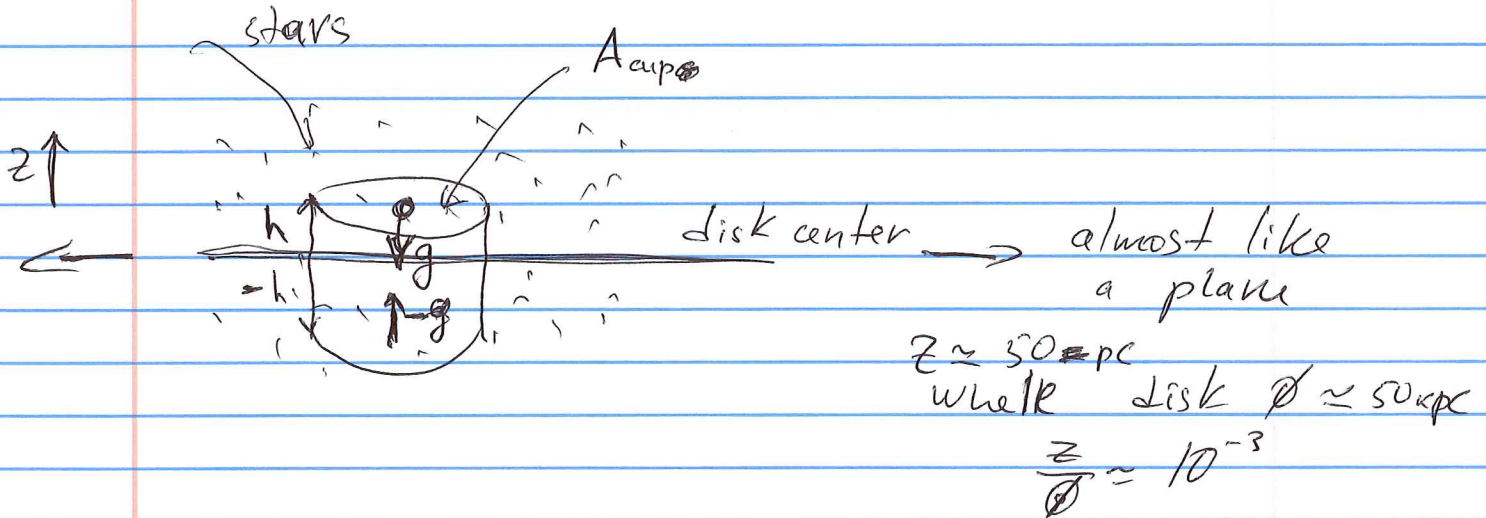 stars
A caps
z
h
g
-h
-g
disk center → almost like
a plane
z ≃ 50 pc
whole disk ∅ ≃ 50 kpc
z/∅ ≃ 10⁻³